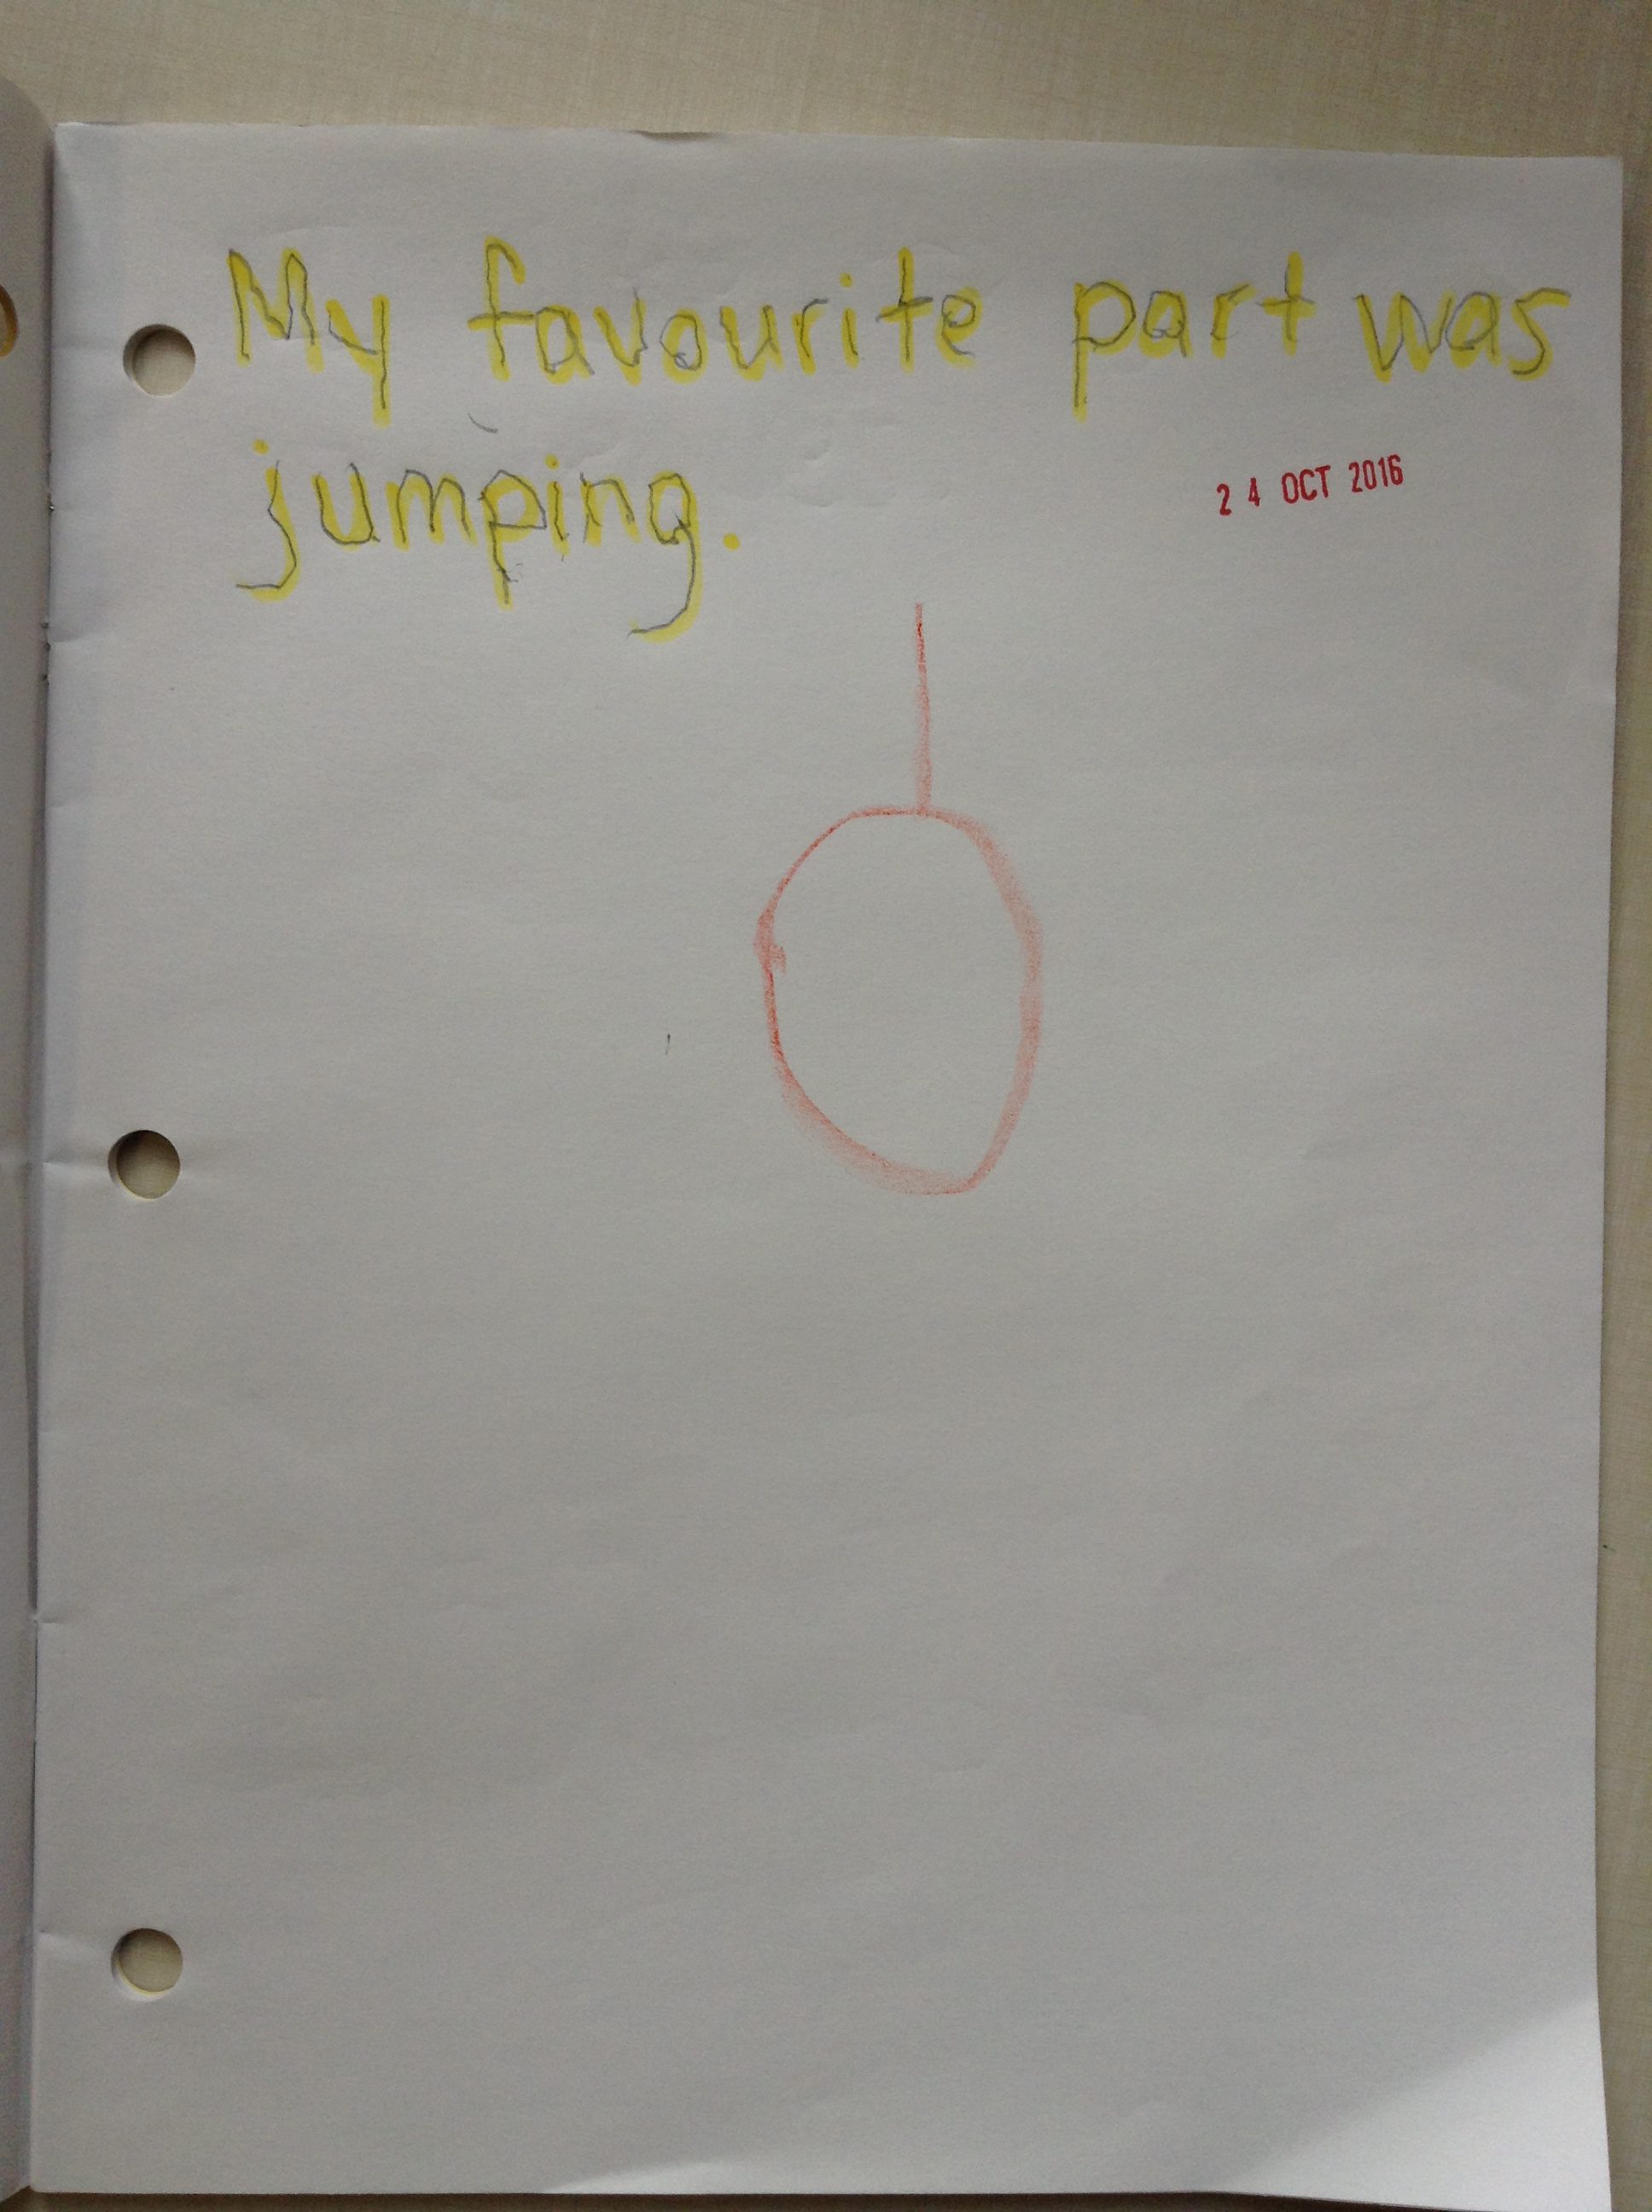 My favourite part was
jumping.
24 OCT 2016